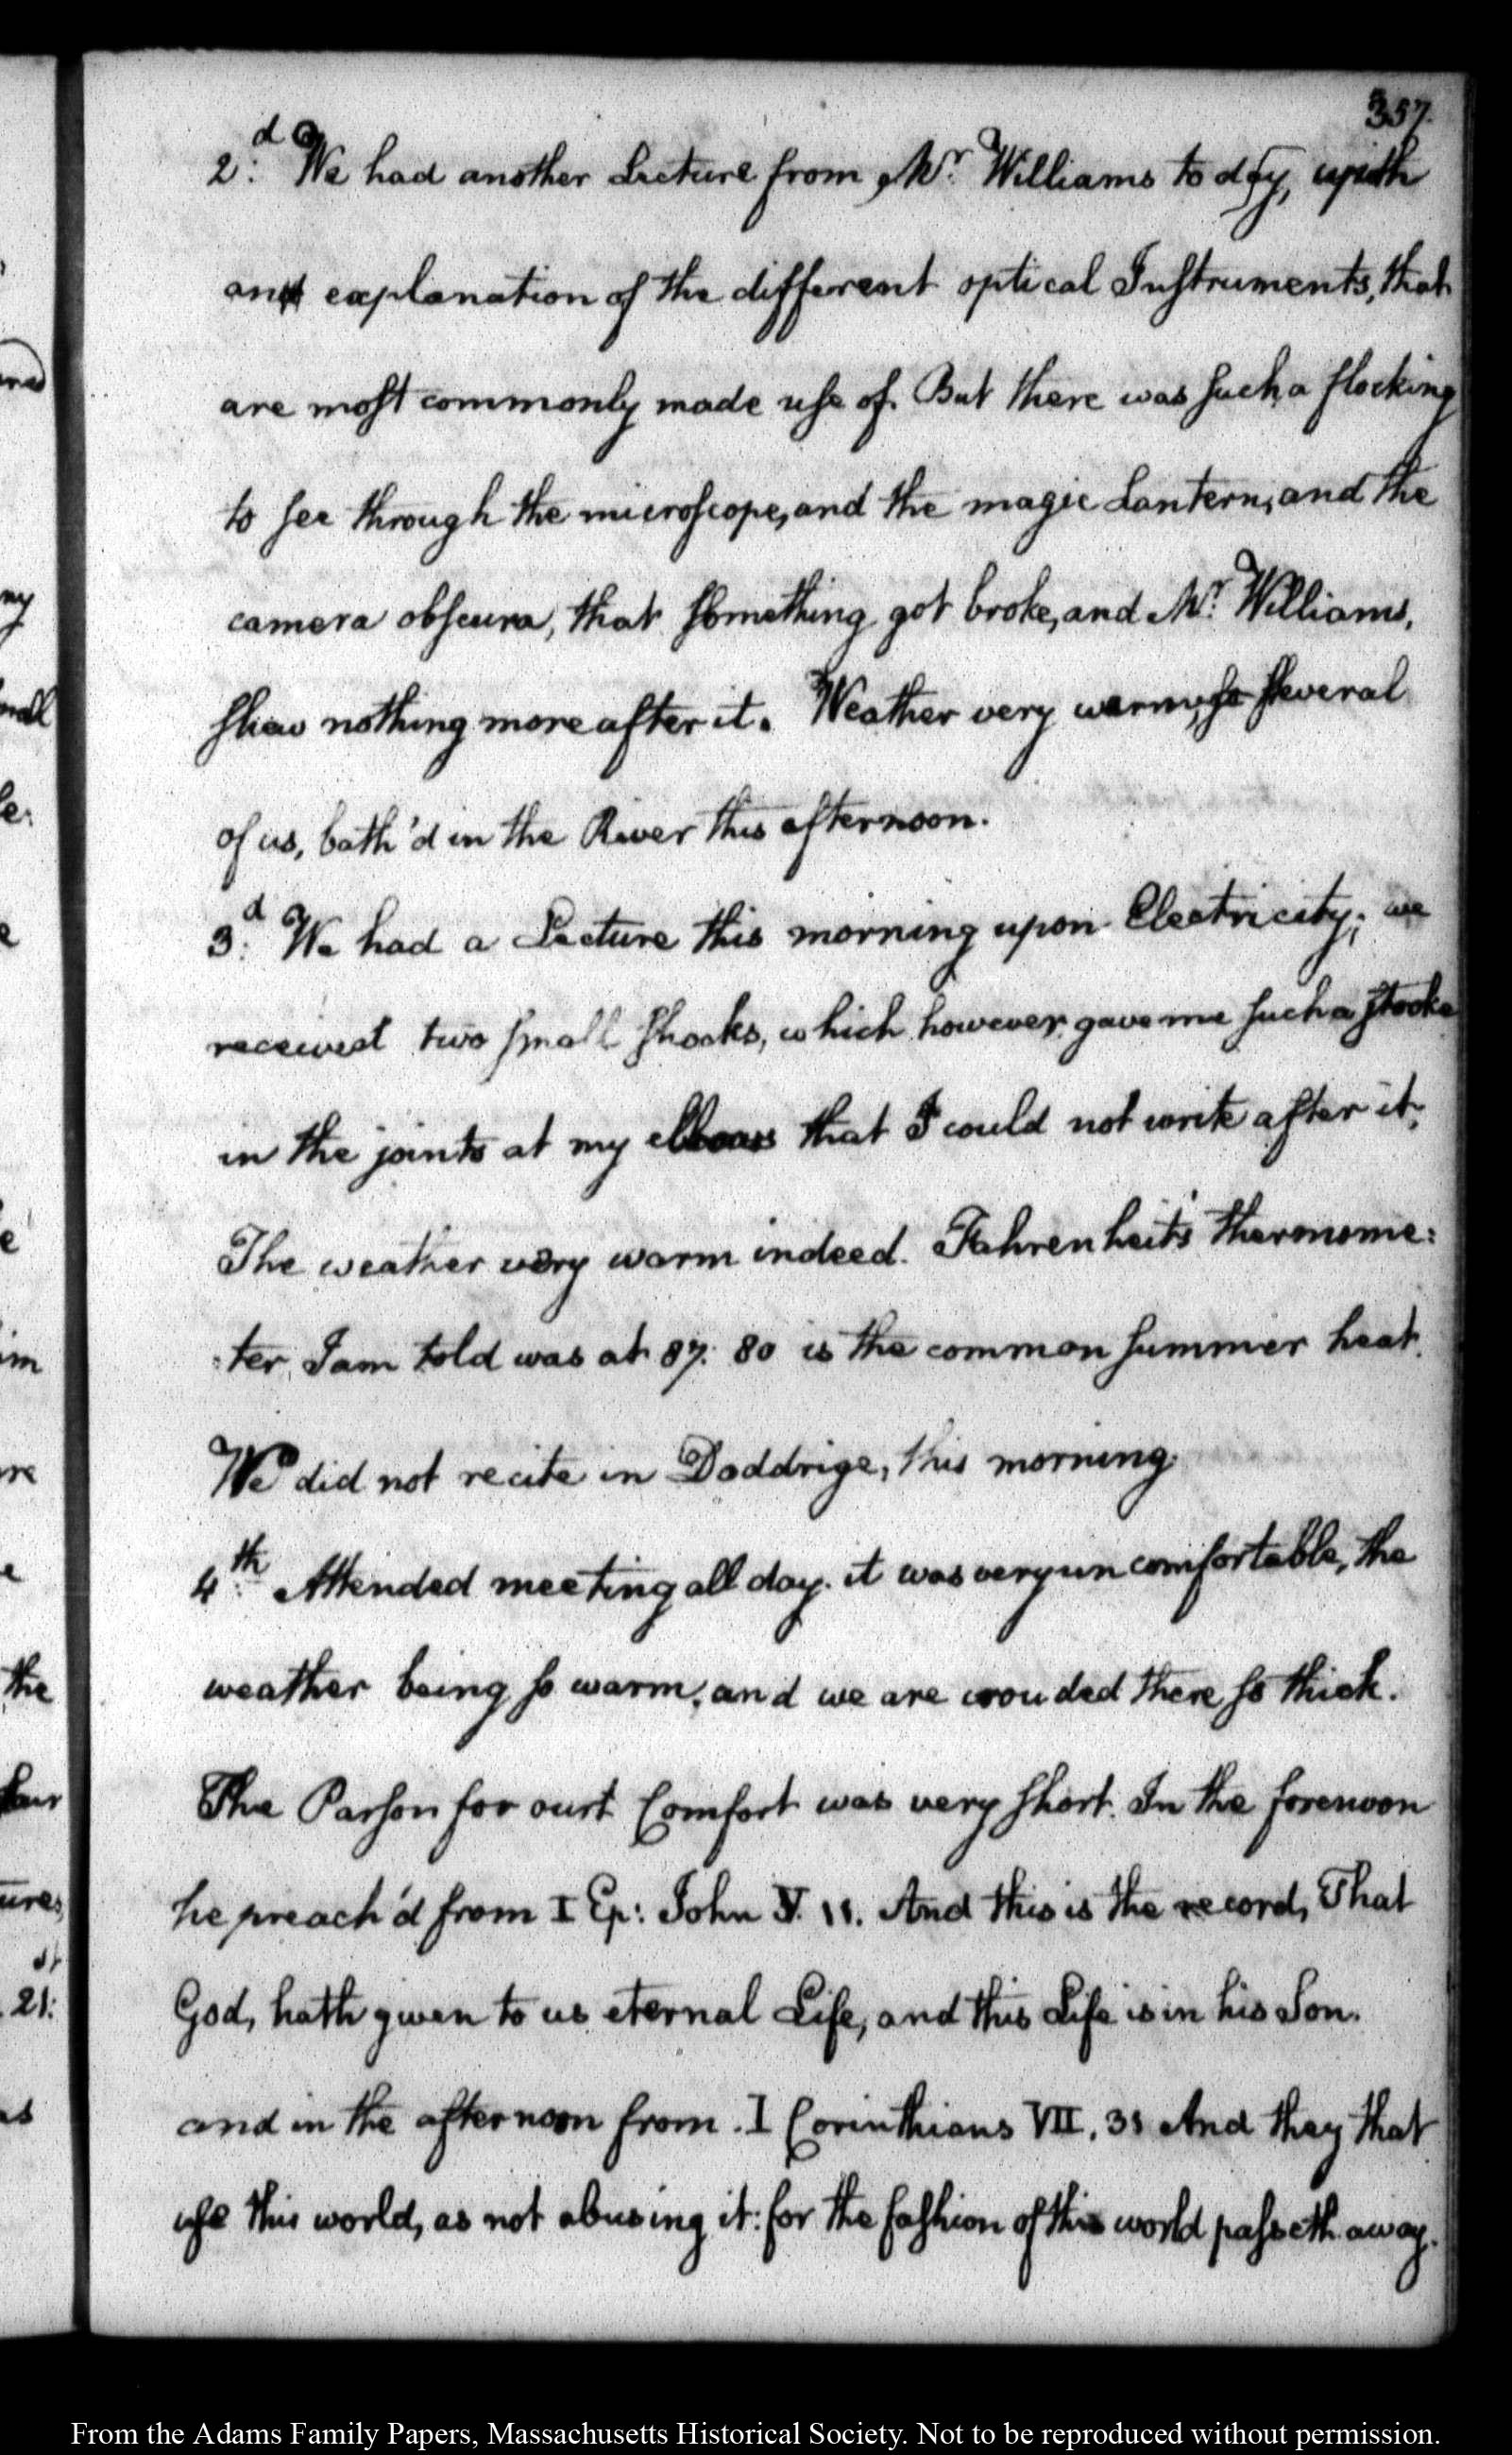 357.
2.d We had another Lecture from Mr. Williams to day, with
an explanation of the different optical Instruments, that
are most commonly made use of. But there was such a flocking
to see through the microscope, and the magic Lantern, and the
camera obscura, that something got broke, and Mr. Williams,
shew nothing more after it. Weather very warm, so several
of us, bath'd in the River this afternoon.
3.d We had a Lecture this morning upon Electricity; we
received two small shocks, which however, gave me such a stroke
in the joints at my elbows that I could not write after it.
The weather very warm indeed. Fahrenheit's thermome:
:ter, I am told was at 87. 80 is the common summer heat.
We did not recite in Doddrige, this morning.
4.th Attended meeting all day. it was very uncomfortable, the
weather being so warm, and we are crouded there so thick.
The Parson for our Comfort was very short. In the forenoon
he preach'd from I Ep: John V. 11. And this is the record, That
God, hath given to us eternal Life, and this Life is in his Son.
and in the afternoon from. I Corinthians VII. 31 And they that
use this world, as not abusing it: for the fashion of this world passeth away.
the
21:
From the Adams Family Papers, Massachusetts Historical Society. Not to be reproduced without permission.